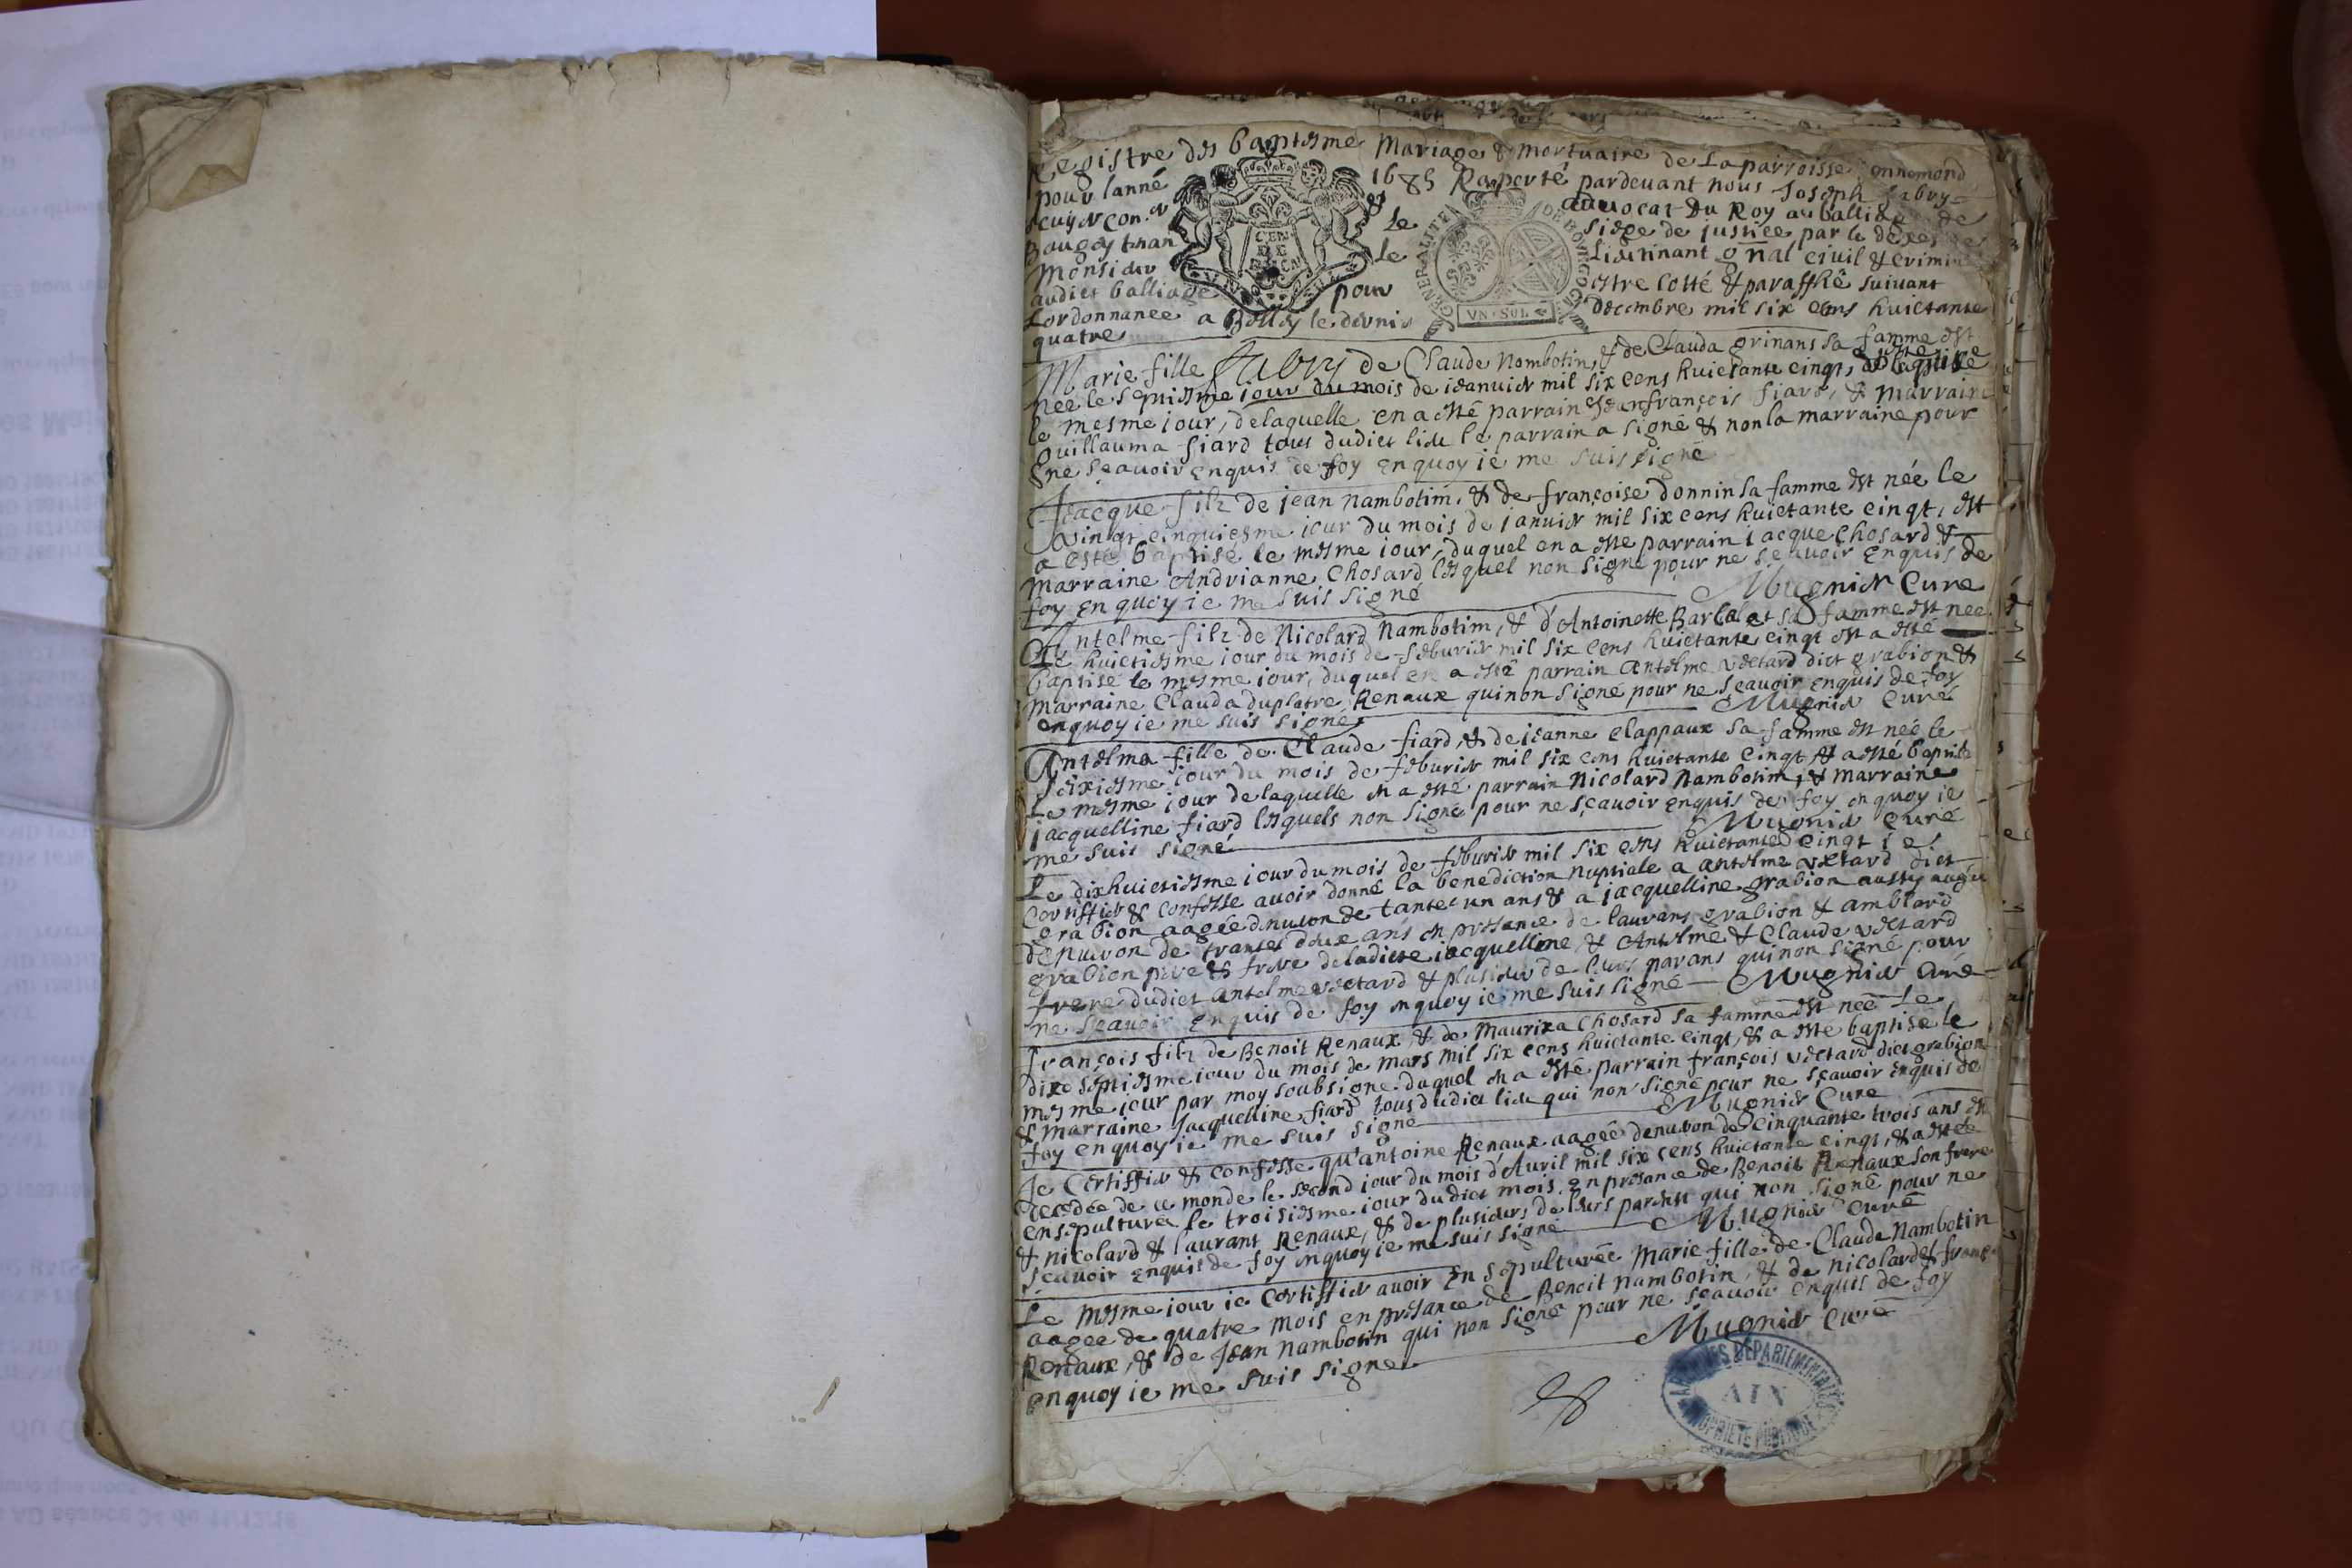 Registre des baptesme Mariage & mortuaire de La parroisse ennemond
pour lanné 1685 Raporté pardevant nous Joseph fabry
escuyer con.er & advocat Du Roy au balliage de
Baugey tenan Le siege de justice par le deces de
Monsieur Le Lieutenant gñal civil & crimin
audict balliage pour estre cotté & paraffhé suivant
Lordonnance a Belley le dernier decembre mil six cens huictante
quatre
fabry
Marie fille de Claude Nambotin & de Clauda grinans sa famme est
née le septiesme jour du mois de jeanvier mil six cens huictante cinqt,
le mesme iour, de laquelle en a esté parrain Jean françois fiard, & marraine
Guillauma fiard tous dudict lieu le parrain a signé & non la marraine pour
ne sçavoir enquis de foy en quoy ie me suis signé
Jacque filz de jean nambotim, & de françoise donnin sa famme est née le
vingt cinquiesme iour du mois de janvier mil six cens huictante cinqt, est
a esté baptisé le mesme iour, duquel en a este parrain jacque Chosard &
marraine Andrianne Chosard lesquel non signé pour ne sçavoir enquis de
foy en quoy ie me suis signé Mugnier Curé
Antelme filz de Nicolard Nambotim, & d'Antoinette Barlalet sa famme est née
Le huictiesme iour du mois de feburier mil six cens huictante cinqt est a esté
baptisé le mesme iour, duquel en a esté parrain Antelme vectard dict grabion &
marraine Clauda duplatre Renaux qui non signé pour ne sçavoir enquis de foy
en quoy ie me suis signé Mugnier Curé
Antelma fille de Claude fiard, & de jeanne Clappaux sa famme est née le
dixiesme jour du mois de feburier mil six cens huictante cinqt & a esté baptisée
Le mesme iour de laquelle en a esté parrain Nicolard Nambotim, & marraine
jacquelline fiard lesquels non signé pour ne sçavoir enquis de foy en quoy ie
me suis signé Mugnier Curé
Le dixhuictiesme iour du mois de feburier mil six cens huictante cinqt je
Certiffier & confesse avoir donné la benediction nuptiale a antelme vectard dict
grabion aagée denviron de tante un ans & a jacquelline grabion aussy aagée
denviron de trantes deux ans en presence de laurans grabion & amblard
grabion pere & frere de ladicte jacquelline, & Antelme & Claude vectard
frere dudict antelme vectard & plusieur de leurs parans qui non signé pour
ne sçavoir enquis de foy en quoy ie me suis signé Mugnier Curé
françois filz de Benoit Renaux & de Mauriza Chosard sa famme est née Le
dixe septiesme iour du mois de mars mil six cens huictante cinqt, & a esté baptisé le
mesme iour par moy soubsigné. duquel en a esté parrain françois vectard dict grabion
& marraine Jacquelline fiard tous dudict lieu qui non signé pour ne sçavoir enquis de
foy en quoy ie me suis signé Mugnier Curé
Je Certiffier & confesse qu'antoine Renaux aagée denviron de Cinquante trois ans est
decedée de ce monde le second jour du mois d'Avril mil six cens huictante cinqt, & a estée
ensepulturée le troisiesme iour du dict mois en presance de Benoit Renaux son frere
& nicolard & laurant Renaux, & de plusieurs de leurs parens qui non signé pour ne
sçavoir enquis de foy en quoy ie me suis signé Mugnier Curé
Le mesme iour ie Certiffier avoir Ensepulturée Marie fille de Claude Nambotin
aagée de quatre mois en presance de Benoit nambotin, & de nicolard &
Renaux, & de Jean nambotin qui non signé pour ne sçavoir enquis de foy
en quoy ie me suis signé Mugnier Curé
GENERALITE DE BOVRGOGNE
VN SOL
ARCHIVES DEPARTEMENTALES
AIN
PROPRIETE PUBLIQUE